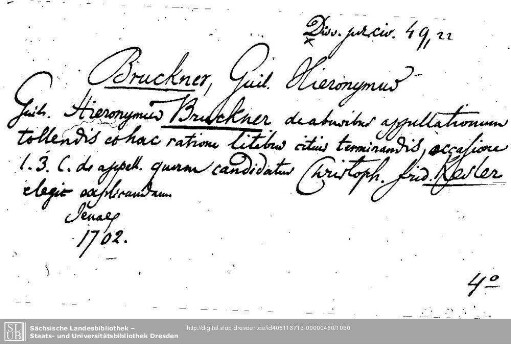 Diss. jur. civ. 49, 22
Bruckner, Guil. Hieronymus
Guil. Hieronymus Bruckner de abusibus appellationum
tollendis et hac ratione litibus citius terminandis, occasione
l. 3. C. de appell. quem candidatus Christoph. Frid. Kesler
elegit explicandam
Jenae
1702.
4°
SLUB
Sächsische Landesbibliothek –
Staats- und Universitätsbibliothek Dresden